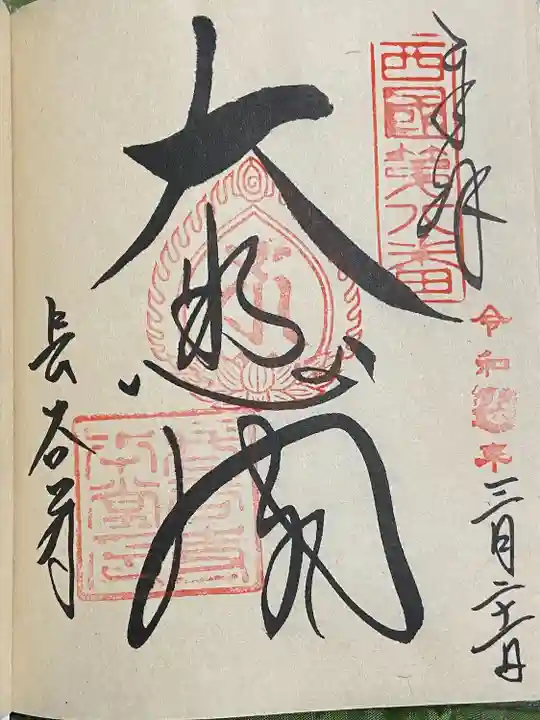 奉拝
西國第八番
令和 年
三月二十一日
大悲閣
長谷寺